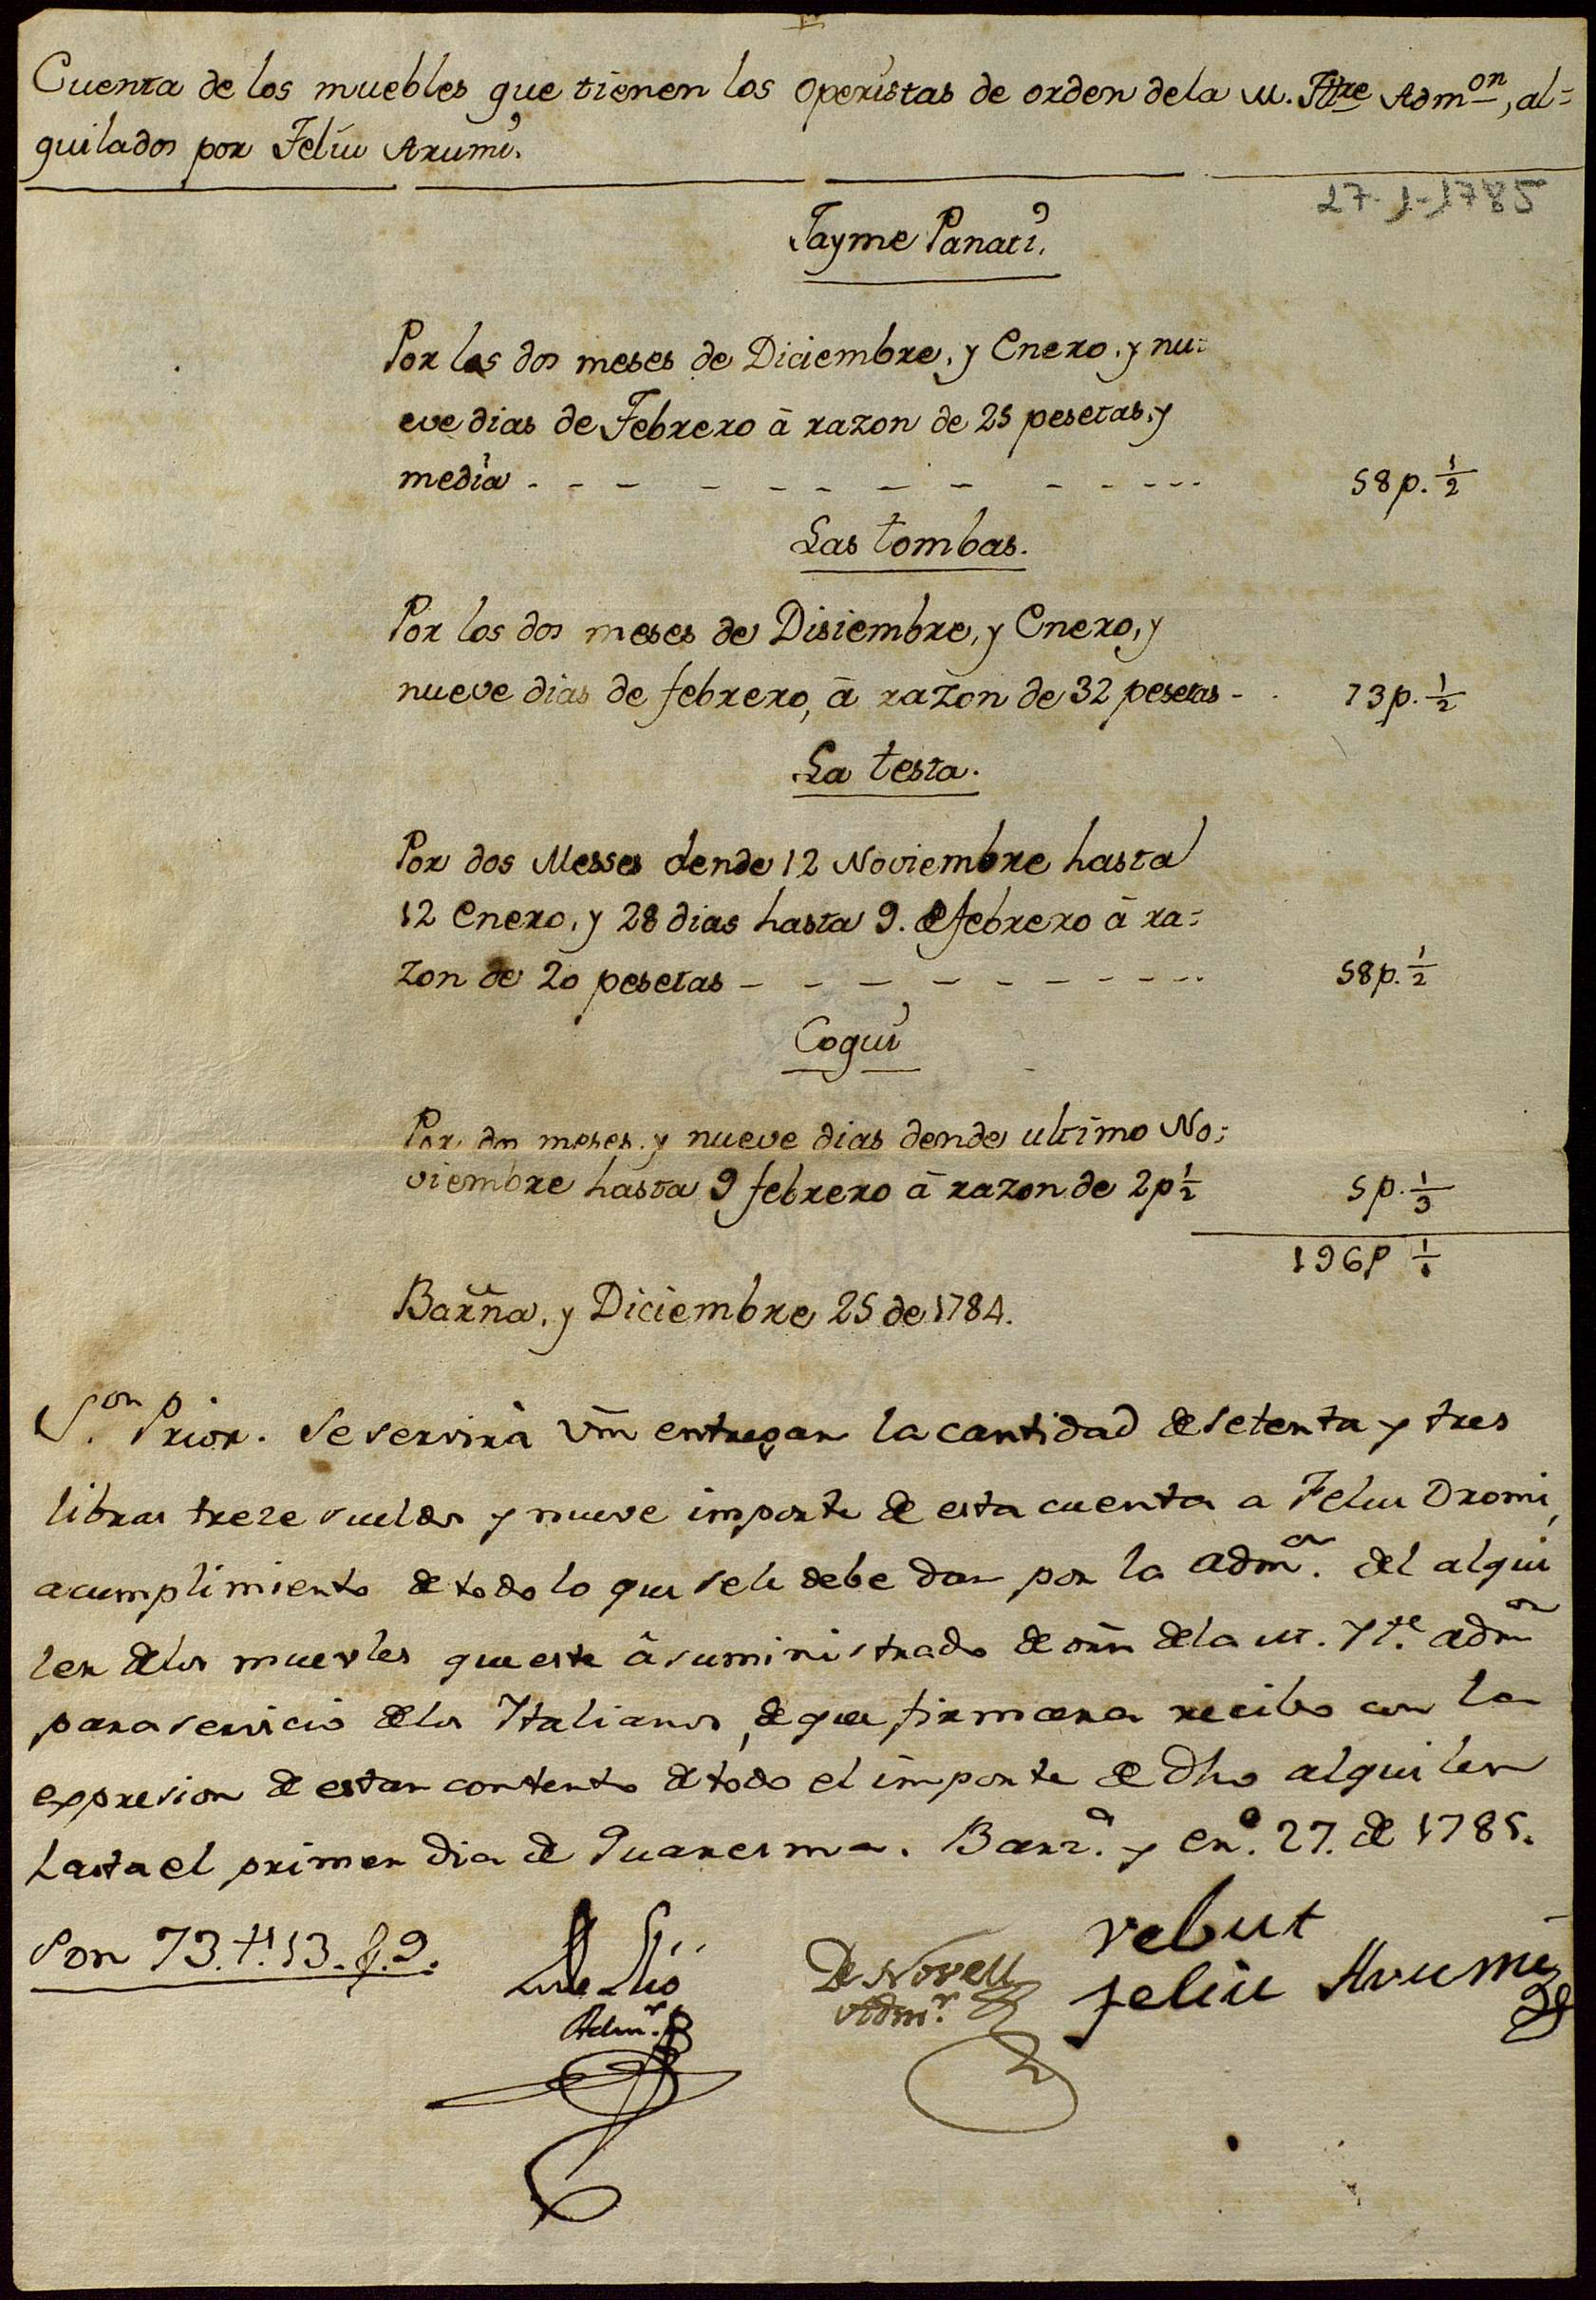 Cuenta de los muebles que tienen los operistas de orden dela M. Iltre Admon, al=
quilados por Feliu Arumi.
27-1-1785
Jayme Panati.
Por los dos meses de Diciembre, y Enero, y nu=
eve dias de Febrero à razon de 25 pesetas, y
media - - - - - - - - - - - - 58 p. 1/2
Las tombas.
Por los dos meses de Disiembre, y Enero, y
nueve dias de febrero, à razon de 32 pesetas - - 73 p. 1/2
La testa.
Por dos Messes dende 12 Noviembre hasta
12 Enero, y 28 dias hasta 9. de febrero à ra=
zon de 20 pesetas - - - - - - - - - - 58 p. 1/2
Coqui
Por dos meses y nueve dias dende ultimo No=
viembre hasta 9 febrero à razon de 2 p 1/2 5 p. 1/3
196 P
Barña, y Diciembre 25 de 1784.
Sor. Prior. Se servirà Vm entregar la cantidad de setenta y tres
libras treze sueldos y nueve importe de esta cuenta a Feliu Dromi,
a cumplimiento de todo lo que sele debe dar por la admon. del alqui
ler delos muebles que este à suministrado de orñ dela M. Ylte. admon
para servicio delos Italianos, de que firmara recibo con la
expresion de estar contento de todo el importe de dho alquiler
hasta el primer dia de Quaresma. Barna. y eno. 27. de 1785.
Son 73.tt 13. s. 9.
Admr.
De Novell
Admr.
rebut
feliu Arumi